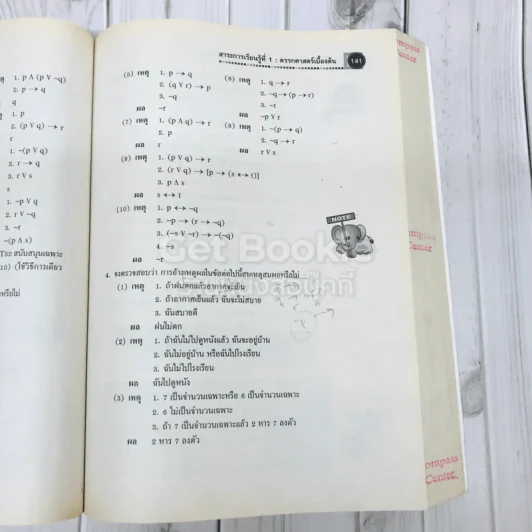 สาระการเรียนรู้ที่ 1 : ตรรกศาสตร์เบื้องต้น 141
1. p ∧ (p ∨ ~q)
2. p → q
q
1. p
2. (p ∨ q) → r
r
1. ~(p ∨ q)
2. r → q
3. r ∨ s
s
1. ~p ∨ q
2. r ∨ ~q
3. ~r
~(p ∧ s)
(5) เหตุ 1. p → q
2. (q ∨ r) → p
3. ~q
ผล ~r
(6) เหตุ 1. q → r
2. ~q → (p → r)
3. ~r
ผล ~p ∨ r
(7) เหตุ 1. (p ∧ q) → r
2. p
ผล r
(8) เหตุ 1. ~(p → q)
2. ~q → r
ผล r ∨ s
(9) เหตุ 1. (p ∨ q) → r
2. (r ∨ q) → [p → (s ↔ t)]
3. p ∧ s
ผล s ↔ t
(10) เหตุ 1. p ↔ ~q
2. ~p → (r → ~q)
3. (~s ∨ ~r) → ~(~q)
4. ~s
ผล ~r
NOTE
Get Books
4. จงตรวจสอบว่า การอ้างเหตุผลในข้อต่อไปนี้สมเหตุสมผลหรือไม่
(1) เหตุ 1. ถ้าฝนตกแล้วอากาศจะเย็น
2. ถ้าอากาศเย็นแล้ว ฉันจะไม่สบาย
3. ฉันสบายดี
ผล ฝนไม่ตก
(2) เหตุ 1. ถ้าฉันไม่ไปดูหนังแล้ว ฉันจะอยู่บ้าน
2. ฉันไม่อยู่บ้าน หรือฉันไปโรงเรียน
3. ฉันไม่ไปโรงเรียน
ผล ฉันไปดูหนัง
(3) เหตุ 1. 7 เป็นจำนวนเฉพาะหรือ 6 เป็นจำนวนเฉพาะ
2. 6 ไม่เป็นจำนวนเฉพาะ
3. ถ้า 7 เป็นจำนวนเฉพาะแล้ว 2 หาร 7 ลงตัว
ผล 2 หาร 7 ลงตัว
ompass
Center
ompass
Center
ompass
Center